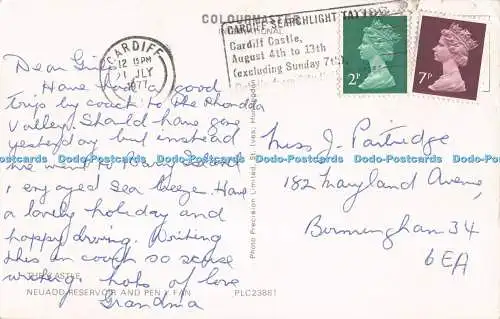 COLOURMASTER
INTERNATIONAL
CARDIFF SEARCHLIGHT TATTOO
Cardiff Castle,
August 4th to 13th
(excluding Sunday 7th)
CARDIFF
12 15PM
21 JLY
1977
2P
7P
Dear
Have had a good
trips by coach to the Rhondda
Valley. Should have gone
yesterday but instead
we went to Barry Island
& enjoyed Sea breeze. Have
a lovely holiday and
happy driving. Writing
this in coach so scuse
writing. lots of love
Grandma
Miss J. Partridge
182 Maryland Avenue,
Birmingham 34
6EA
Photo Precision Limited, St. Ives, Huntingdon
THE CASTLE
NEUADD RESERVOIR AND PEN Y FAN
PLC23861
Dodo-Postcards Dodo-Postcards Dodo-Postcards Dodo-Postcards Dodo-Postcards